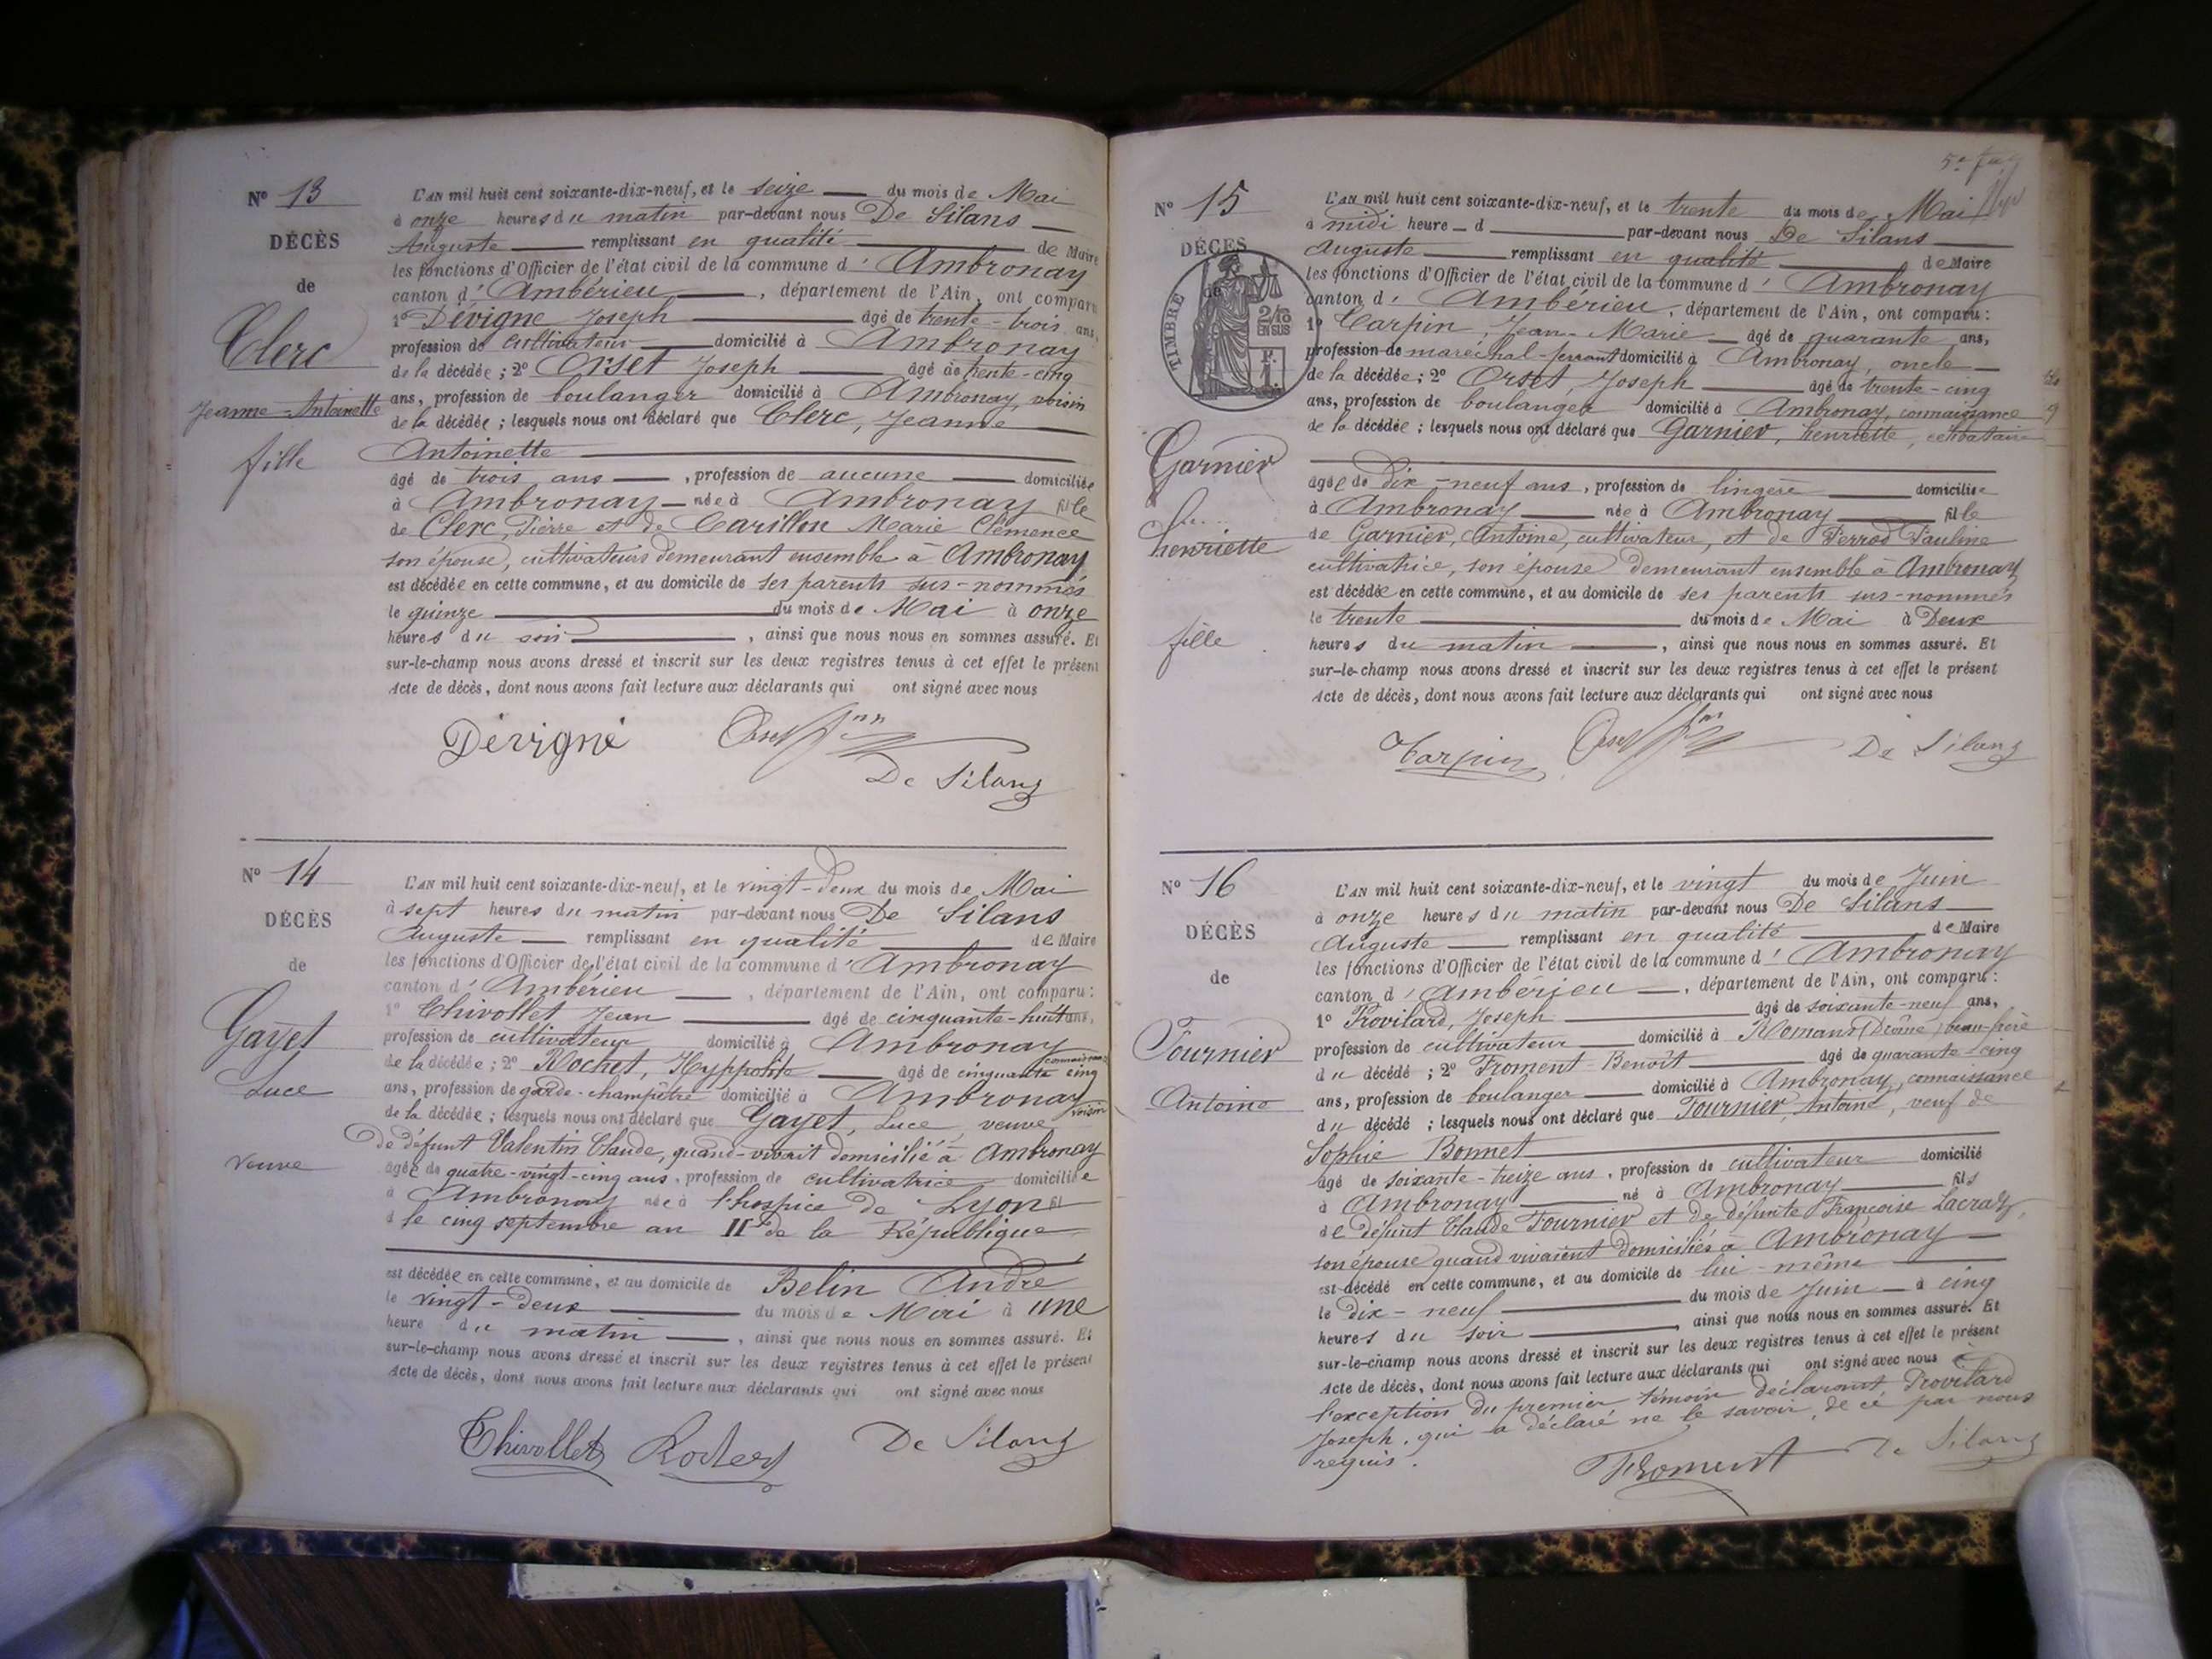 N° 13
DÉCÈS
de
Clerc
Jeanne-Antoinette
fille
L'AN mil huit cent soixante-dix-neuf, et le seize du mois de Mai
à onze heures du matin par-devant nous De Silans
Auguste remplissant en qualité de Maire
les fonctions d'Officier de l'état civil de la commune d'Ambronay
canton d'Ambérieu, département de l'Ain, ont comparu
1° Dévigne Joseph âgé de trente-trois ans,
profession de cultivateur domicilié à Ambronay
de la décédée ; 2° Orset Joseph âgé de trente-cinq
ans, profession de boulanger domicilié à Ambronay, voisin
de la décédée ; lesquels nous ont déclaré que Clerc, Jeanne
Antoinette
âgé de trois ans, profession de aucune domiciliée
à Ambronay née à Ambronay fille
de Clerc, Pierre et de Carillon Marie Clémence
son épouse, cultivateurs demeurant ensemble à Ambronay
est décédée en cette commune, et au domicile de ses parents sus-nommés
le quinze du mois de Mai à onze
heures du soir, ainsi que nous nous en sommes assuré. Et
sur-le-champ nous avons dressé et inscrit sur les deux registres tenus à cet effet le présent
Acte de décès, dont nous avons fait lecture aux déclarants qui ont signé avec nous
Dévigne Orset De Silans
N° 14
DÉCÈS
de
Gayet
Luce
veuve
L'AN mil huit cent soixante-dix-neuf, et le vingt-deux du mois de Mai
à sept heures du matin par-devant nous De Silans
Auguste remplissant en qualité de Maire
les fonctions d'Officier de l'état civil de la commune d'Ambronay
canton d'Ambérieu, département de l'Ain, ont comparu :
1° Chivollet Jean âgé de cinquante-huit ans,
profession de cultivateur domicilié à Ambronay connaissance
de la décédée ; 2° Rochet, Hyppolite âgé de cinquante cinq
ans, profession de garde-champêtre domicilié à Ambronay voisin
de la décédée ; lesquels nous ont déclaré que Gayet, Luce veuve
de défunt Valentin Claude, quand-vivait domicilié à Ambronay
âgée de quatre-vingt-cinq ans, profession de cultivatrice domiciliée
à Ambronay née à l'hospice de Lyon fil
d le cinq septembre an II de la République
est décédée en cette commune, et au domicile de Belin André
le vingt-deux du mois de Mai à une
heure du matin, ainsi que nous nous en sommes assuré. Et
sur-le-champ nous avons dressé et inscrit sur les deux registres tenus à cet effet le présent
Acte de décès, dont nous avons fait lecture aux déclarants qui ont signé avec nous
Chivollet Rochet De Silans
N° 15
DÉCÈS
de
TIMBRE
2/10
EN SUS
Garnier
henriette
fille
L'AN mil huit cent soixante-dix-neuf, et le trente du mois de Mai
à midi heure d par-devant nous De Silans
Auguste remplissant en qualité de Maire
les fonctions d'Officier de l'état civil de la commune d'Ambronay
canton d'Ambérieu, département de l'Ain, ont comparu :
1° Carpin, Jean-Marie âgé de quarante ans,
profession de maréchal-ferrant domicilié à Ambronay, oncle
de la décédée ; 2° Orset, Joseph âgé de trente-cinq
ans, profession de boulanger domicilié à Ambronay, connaissance
de la décédée ; lesquels nous ont déclaré que Garnier, henriette, célibataire
âgée de dix-neuf ans, profession de lingère domiciliée
à Ambronay née à Ambronay fille
de Garnier, Antoine, cultivateur, et de Ferrod Pauline
cultivatrice, son épouse demeurant ensemble à Ambronay
est décédée en cette commune, et au domicile de ses parents sus-nommés
le trente du mois de Mai à Deux
heures du matin, ainsi que nous nous en sommes assuré. Et
sur-le-champ nous avons dressé et inscrit sur les deux registres tenus à cet effet le présent
Acte de décès, dont nous avons fait lecture aux déclarants qui ont signé avec nous
Carpin Orset De Silans
N° 16
DÉCÈS
de
Fournier
Antoine
L'AN mil huit cent soixante-dix-neuf, et le vingt du mois de Juin
à onze heures du matin par-devant nous De Silans
Auguste remplissant en qualité de Maire
les fonctions d'Officier de l'état civil de la commune d'Ambronay
canton d'Ambérieu, département de l'Ain, ont comparu :
1° Provilard, Joseph âgé de soixante-neuf ans,
profession de cultivateur domicilié à Romans (Drôme) beau-frère
du décédé ; 2° Froment Benoît âgé de quarante-cinq
ans, profession de boulanger domicilié à Ambronay, connaissance
du décédé ; lesquels nous ont déclaré que Fournier, Antoine, veuf de
Sophie Bonnet
âgé de soixante-treize ans, profession de cultivateur domicilié
à Ambronay né à Ambronay fils
de défunt Claude Fournier et de défunte Françoise Lacraz,
son épouse quand vivaient domiciliés à Ambronay
est décédé en cette commune, et au domicile de lui-même
le dix-neuf du mois de Juin à cinq
heures du soir, ainsi que nous nous en sommes assuré. Et
sur-le-champ nous avons dressé et inscrit sur les deux registres tenus à cet effet le présent
Acte de décès, dont nous avons fait lecture aux déclarants qui ont signé avec nous à
l'exception du premier témoin déclarant Provilard
Joseph, qui a déclaré ne le savoir, de ce par nous
requis.
Froment De Silans